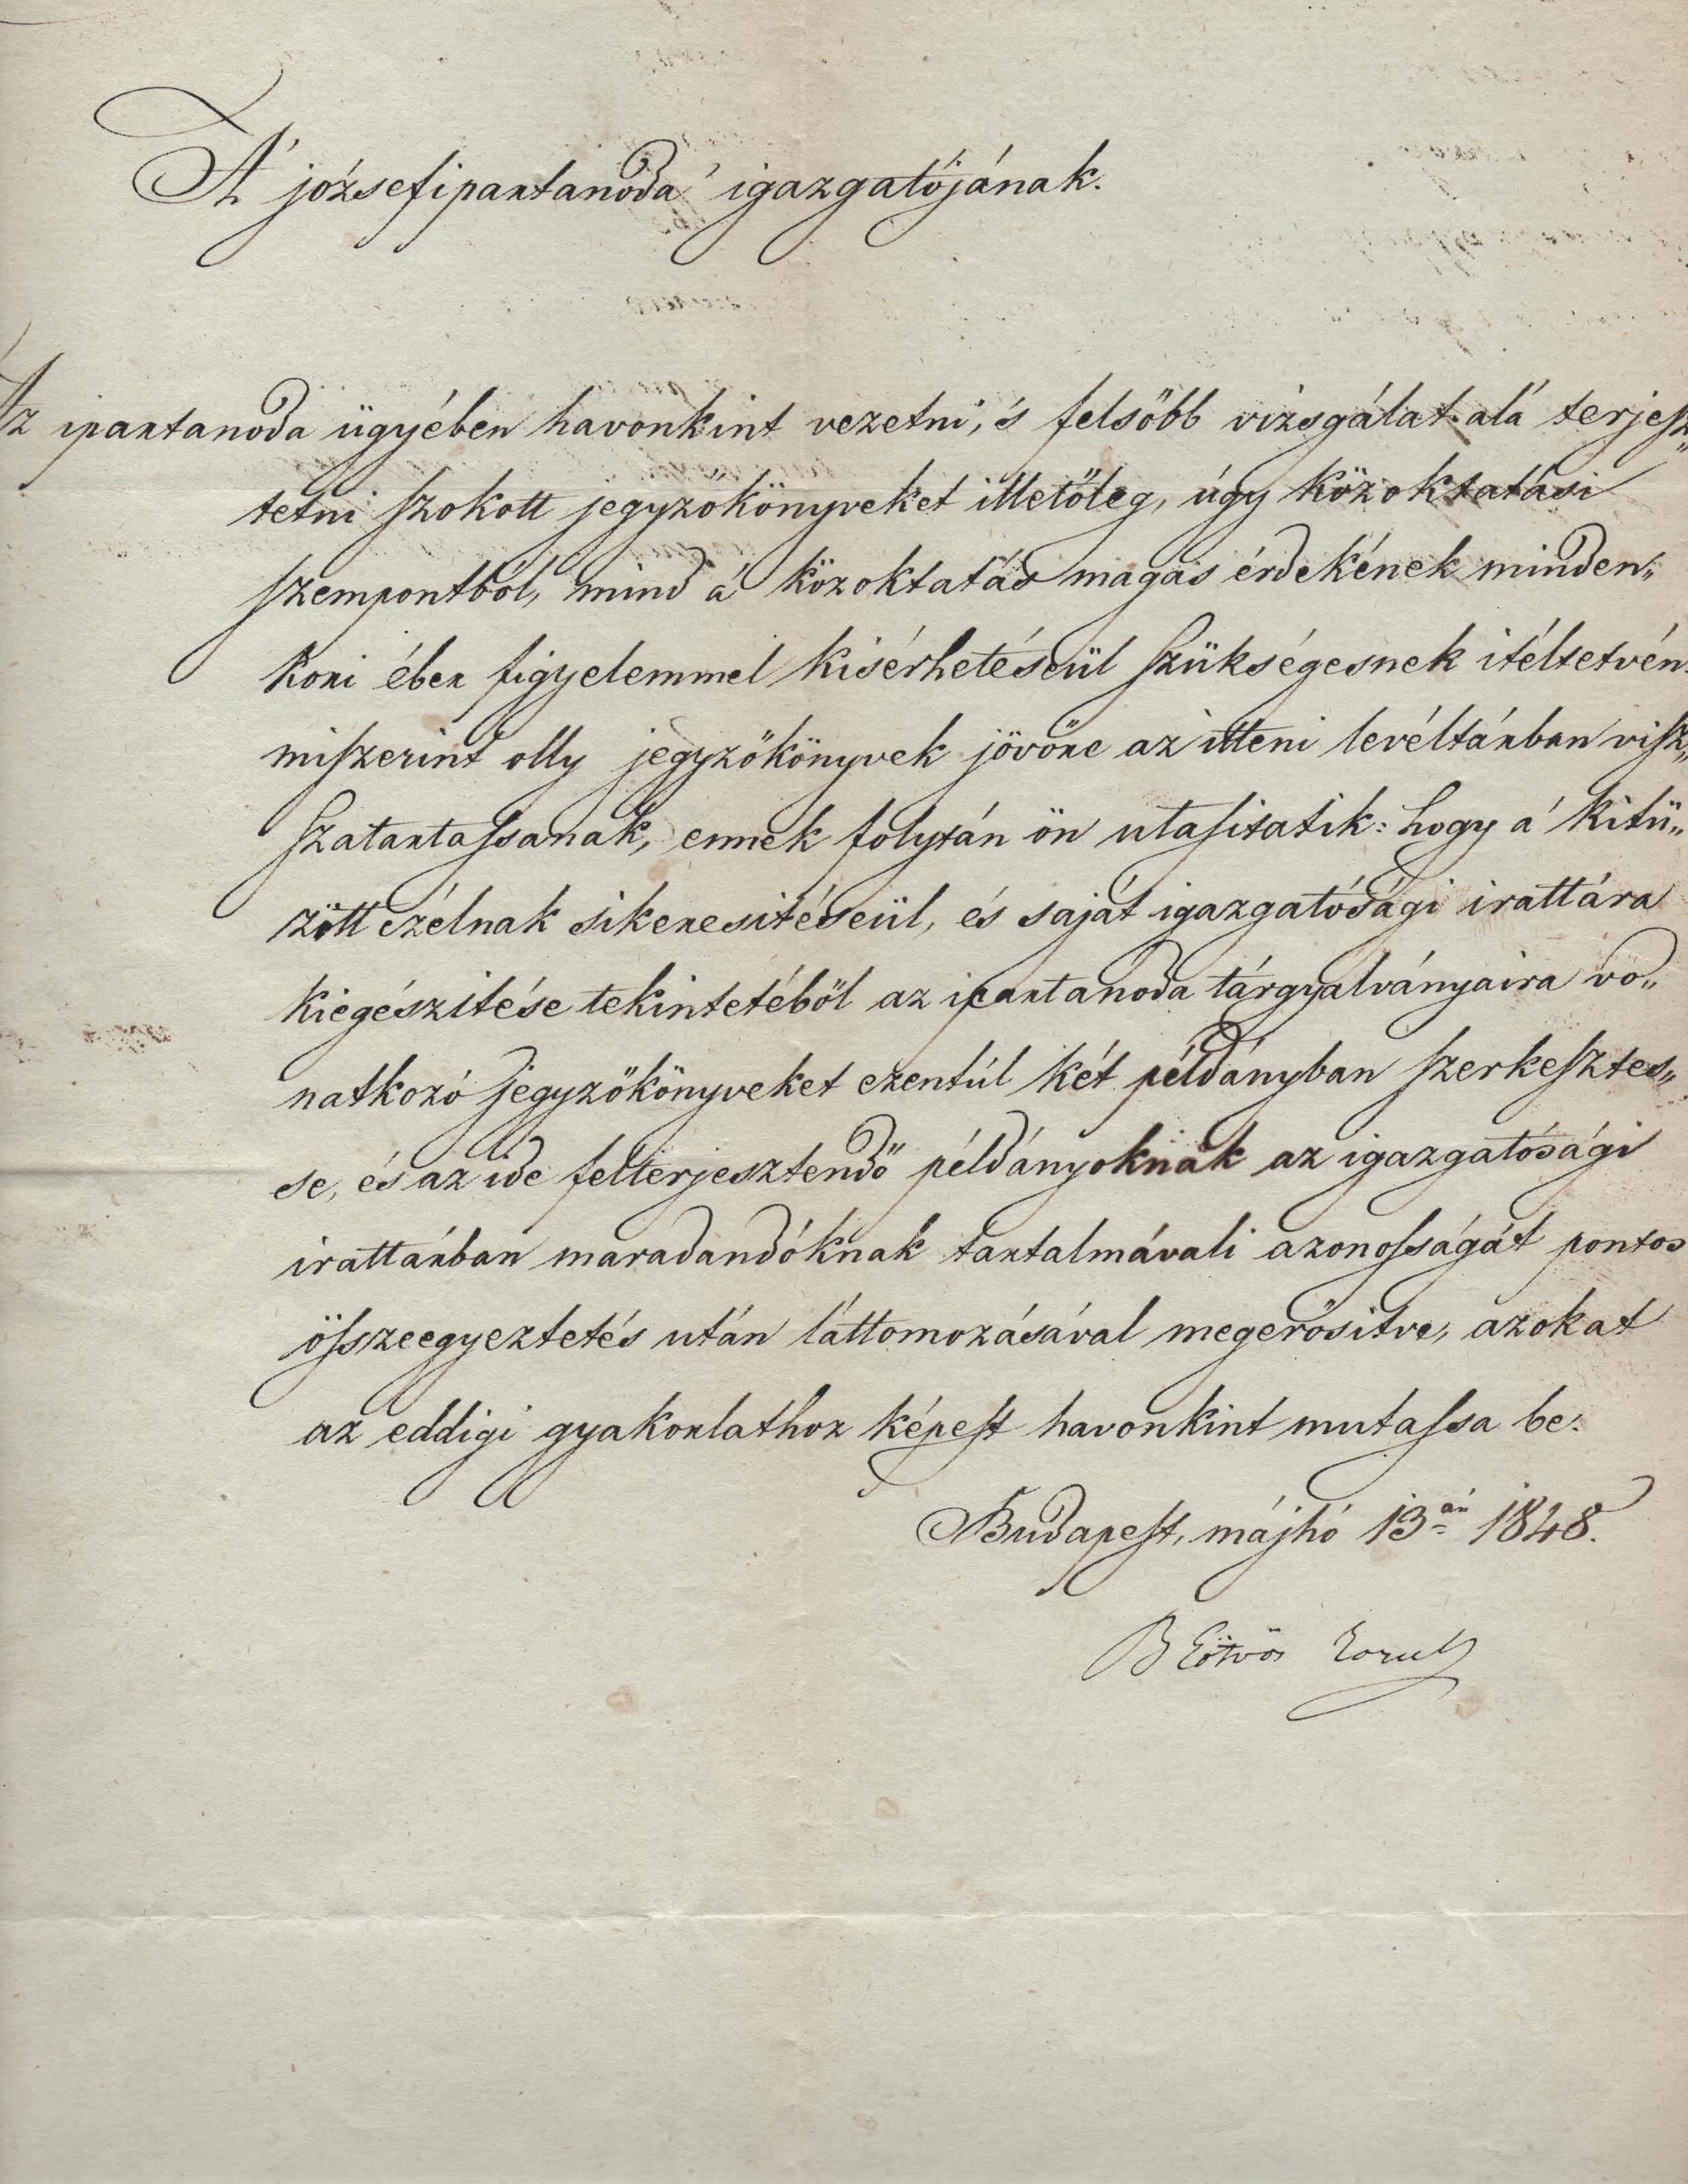 A' józsefipartanoda' igazgatójának.
Az ipartanoda ügyében havonkint vezetni, 's felsőbb vizsgálat alá terjesz„
tetni szokott jegyzokönyveket illetőleg, úgy közoktatási
szempontból, mind a' közoktatás magas érdekének minden„
kori éber figyelemmel kisérhetéseül szükségesnek itéltetvén
miszerint olly jegyzőkönyvek jövőre az itteni levéltárban visz„
szatartassanak, ennek folytán ön utasitatik: hogy a' kitü„
zött czélnak sikeresitéseül, és saját igazgatósági irattára
kiegészitése tekintetéből az ipartanoda tárgyalványaira vo„
natkozó jegyzőkönyveket ezentúl két példányban szerkesztes„
se, és az ide felterjesztendő példányoknak az igazgatósági
irattárban maradandóknak tartalmávali azonosságát pontos
összeegyeztetés után láttomozásával megerősitve, azokat
az eddigi gyakorlathoz képest havonkint mutassa be.
Budapest, májhó 13án 1848.
B Eötvös József